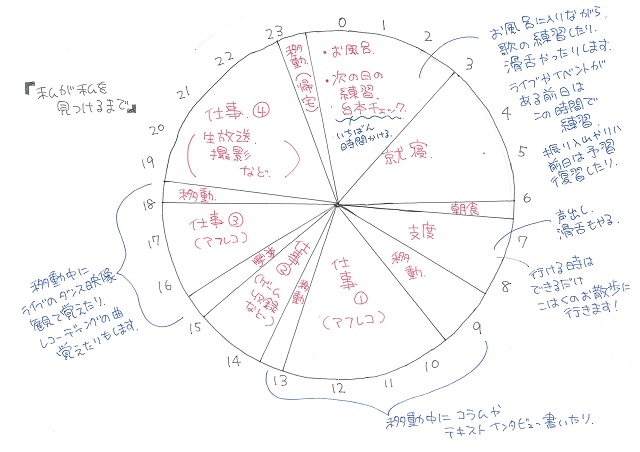 『私が私を
見つけるまで』
0
1
2
3
4
5
6
7
8
9
10
11
12
13
14
15
16
17
18
19
20
21
22
23
・お風呂.
・次の日の
練習.
台本チェック.
いちばん
時間かける.
就寝.
朝食
支度
移動.
仕事
①
(アフレコ)
移動
仕事
②
(ゲーム
収録
など…)
移動
仕事③
(アフレコ)
移動.
仕事.④
(生放送
撮影
など.)
移動(帰宅)
お風呂に入りながら.
歌の練習したり.
滑舌やったりします.
ライブやイベントが
ある前日は
この時間で
練習.
振り入れやリハ
前日は予習
復習したり.
声出し.
滑舌もやる.
行ける時は
できるだけ
こはくのお散歩に
行きます!
移動中に コラムや
テキストインタビュー書いたり.
移動中に
ライブのダンス映像
観て覚えたり.
レコーディングの曲
覚えたりもします.